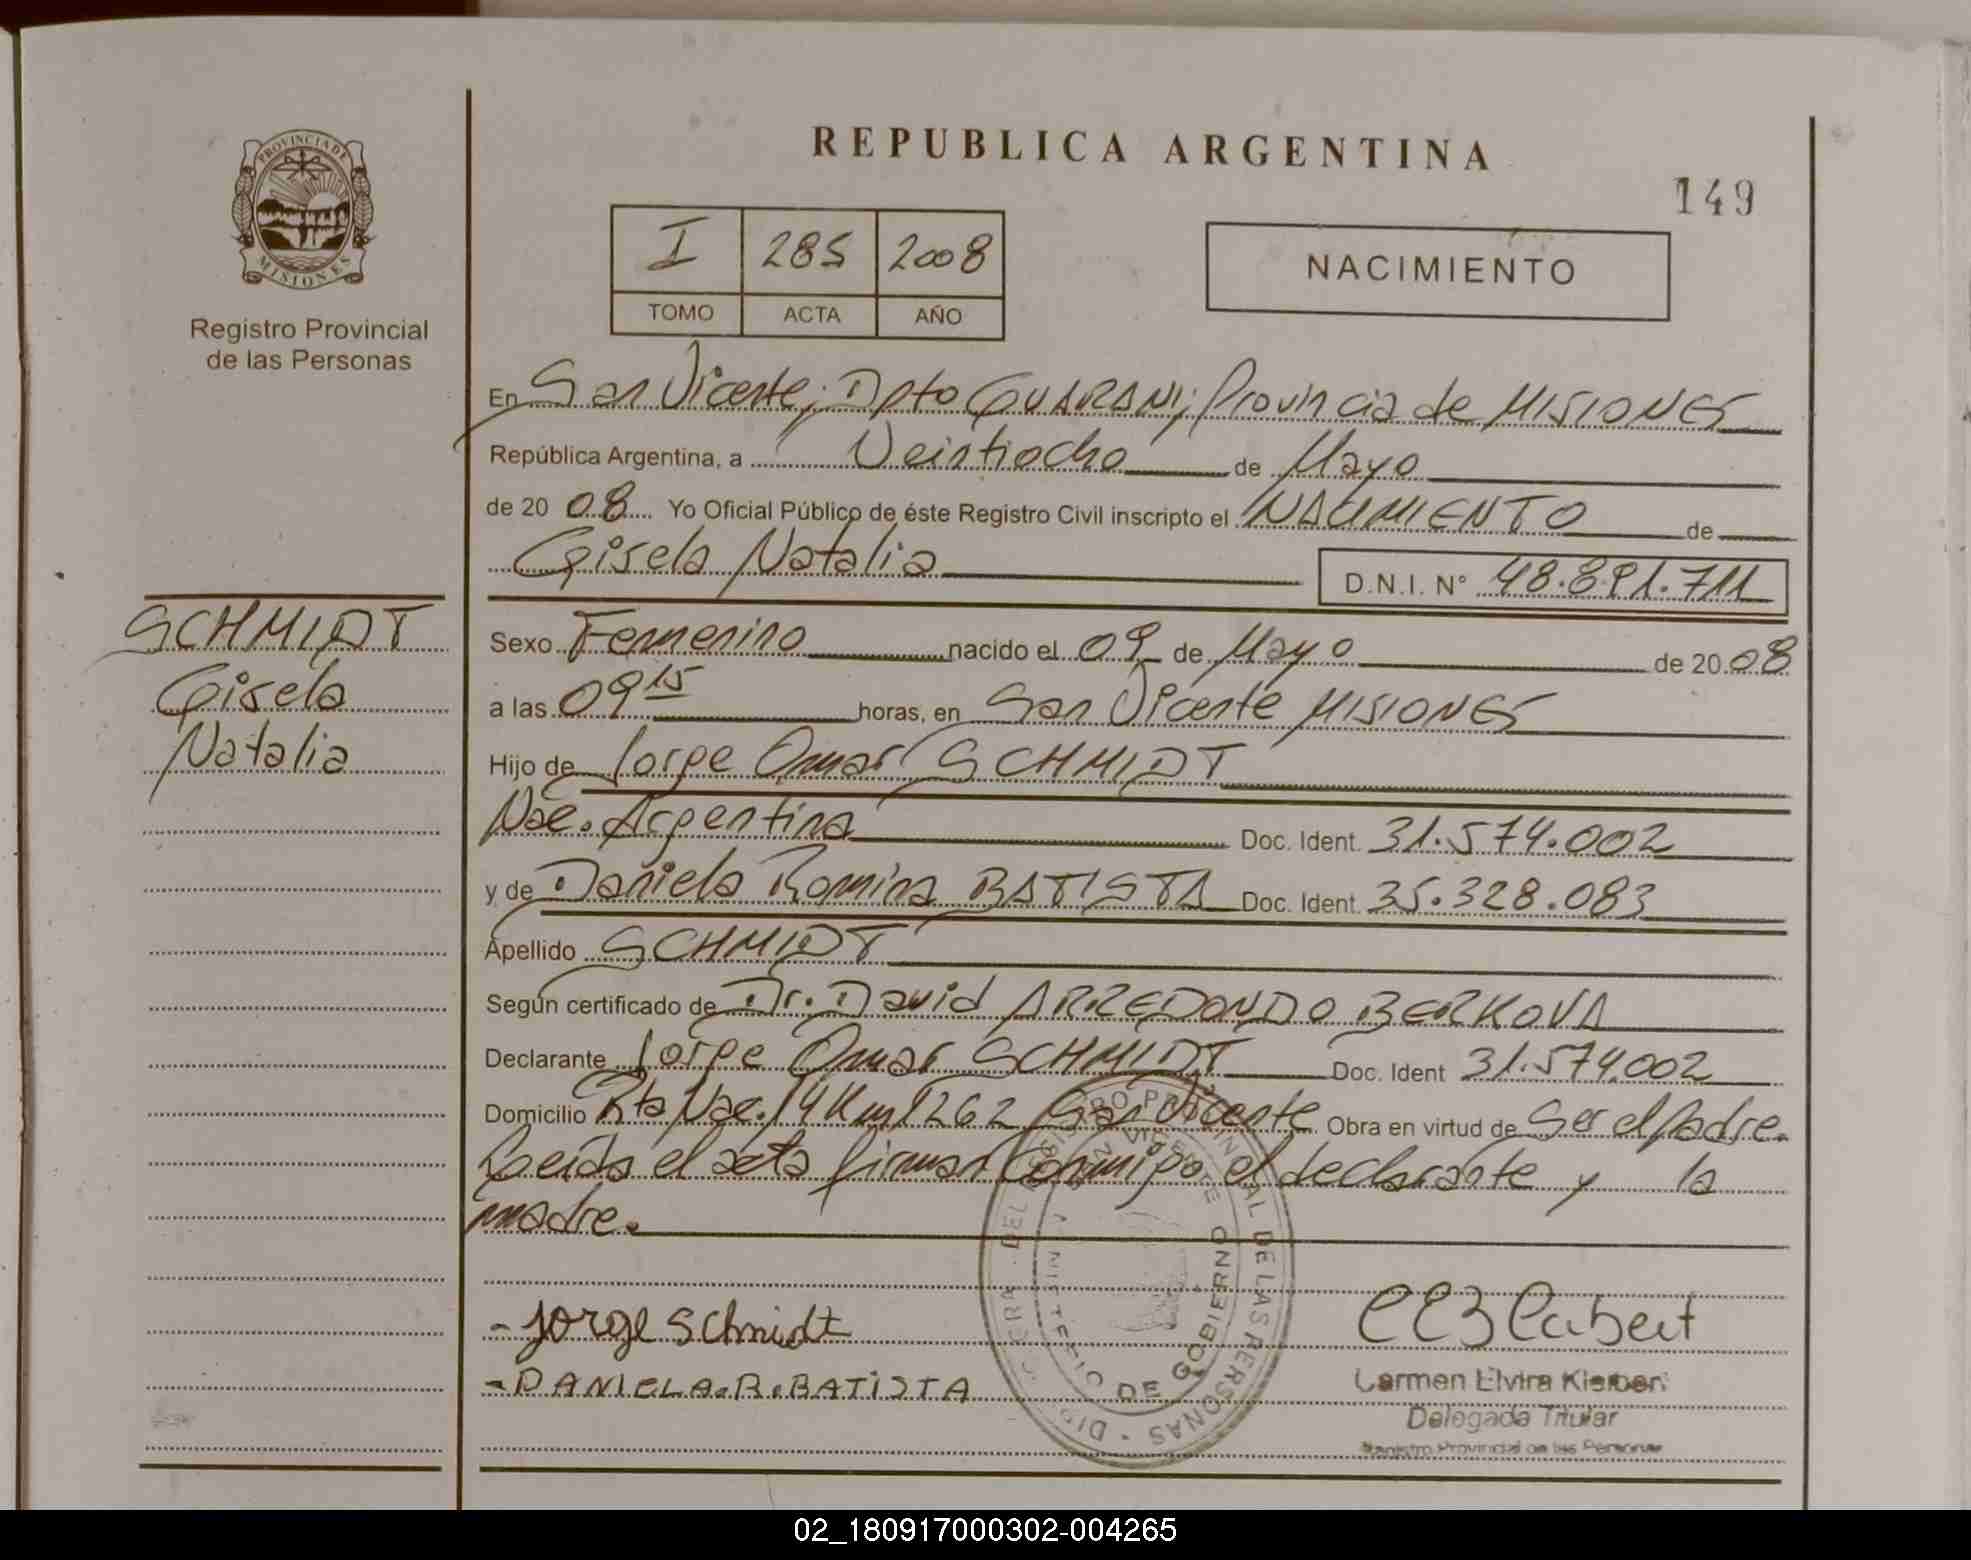 PROVINCIA DE
MISIONES
Registro Provincial
de las Personas
SCHMIDT
Gisela
Natalia
REPUBLICA ARGENTINA
149
I 285 2008
TOMO ACTA AÑO
NACIMIENTO
En San Vicente; Dpto GUARANI; Provincia de MISIONES
República Argentina, a Veintiocho de Mayo
de 20 08 Yo Oficial Público de éste Registro Civil inscripto el NACIMIENTO de
Gisela Natalia D.N.I. N° 48.891.711
Sexo Femenino nacido el 09 de Mayo de 20 08
a las 09 15 horas, en San Vicente MISIONES
Hijo de Jorge Omar SCHMIDT
Nac. Argentina Doc. Ident. 31.574.002
y de Daniela Romina BATISTA Doc. Ident. 35.328.083
Apellido SCHMIDT
Según certificado de Dr. David ARREDONDO BERKOVA
Declarante Jorge Omar SCHMIDT Doc. Ident 31.574.002
Domicilio Rta Nac. 14 Km 1262 San Vicente Obra en virtud de Ser el Padre.
Leida el acta firman Conmigo el declarante y la
madre.
- Jorge Schmidt
- DANIELA.R.BATISTA
Carmen Elvira
Delegada Titular
Registro Provincial de las Personas
DEL REGISTRO PROVINCIAL DE LAS PERSONAS
SAN VICENTE
MINISTERIO DE GOBIERNO
02_180917000302-004265